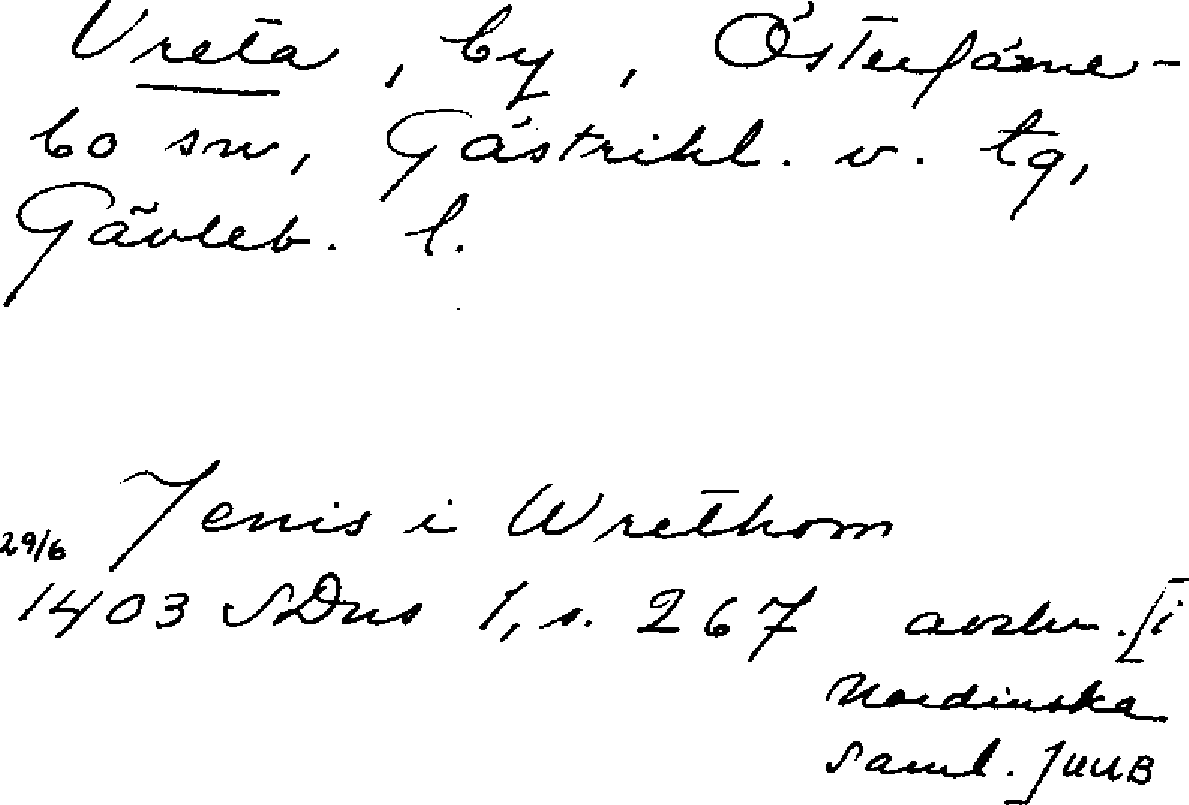 Vreta, by, Österfärne-
bo sn, Gästrikl. v. tg,
Gävleb. l.
Jenis i Wrethom
29/6
1403 SDns 1, s. 267 avskr. [i
Nordinska
saml.] UUB